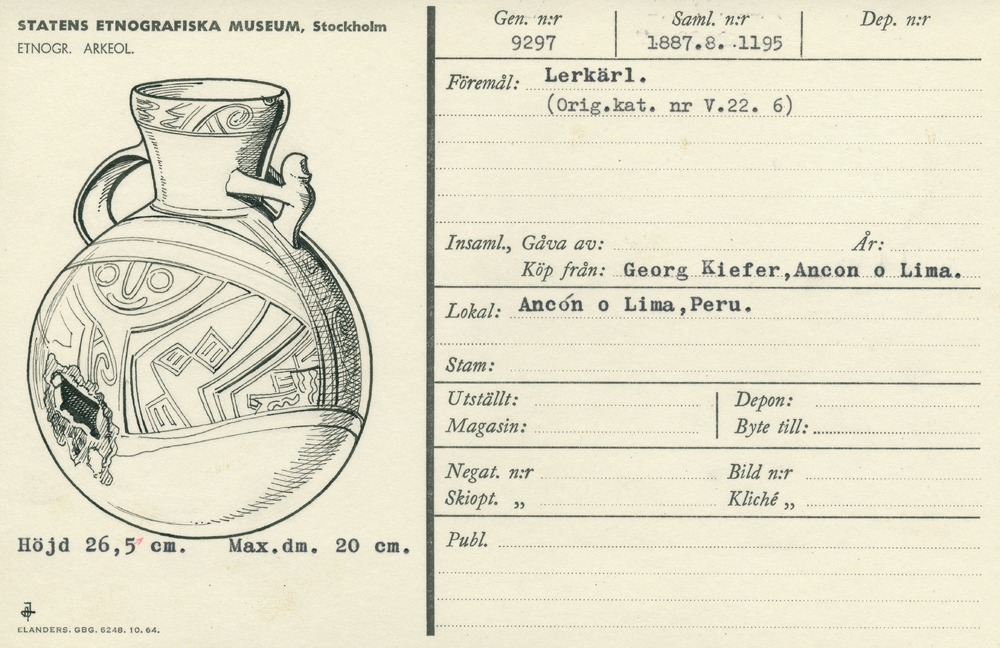 STATENS ETNOGRAFISKA MUSEUM, Stockholm
ETNOGR. ARKEOL.
Höjd 26,5 cm. Max.dm. 20 cm.
ELANDERS. GBG. 6248. 10. 64.
Gen. n:r Saml. n:r Dep. n:r
9297 1887.8. 1195
Föremål: Lerkärl.
(Orig.kat. nr V.22. 6)
Insaml., Gåva av: År:
Köp från: Georg Kiefer,Ancon o Lima.
Lokal: Ancón o Lima,Peru.
Stam:
Utställt: Depon:
Magasin: Byte till:
Negat. n:r Bild n:r
Skiopt. „ Kliché „
Publ.